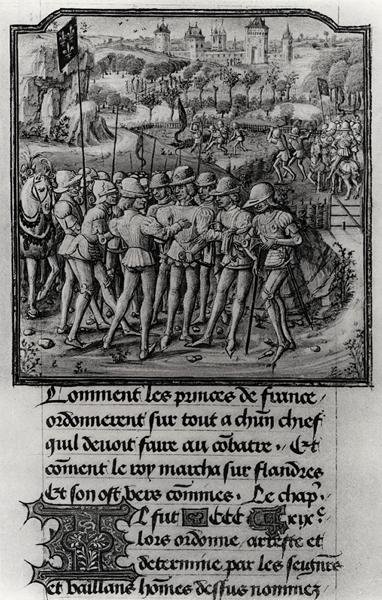 Comment les princes de france
ordonnerent sur tout a chūn chief
quil devoit faire au cōbatre. Et
cōment le roy marcha sur flandres
Et son ost vers commes. Le chap̄.
Il fut CCC xixc
lors ordonne, arreste et
determine par les seignrs
et vaillans hōmes dessus nommez